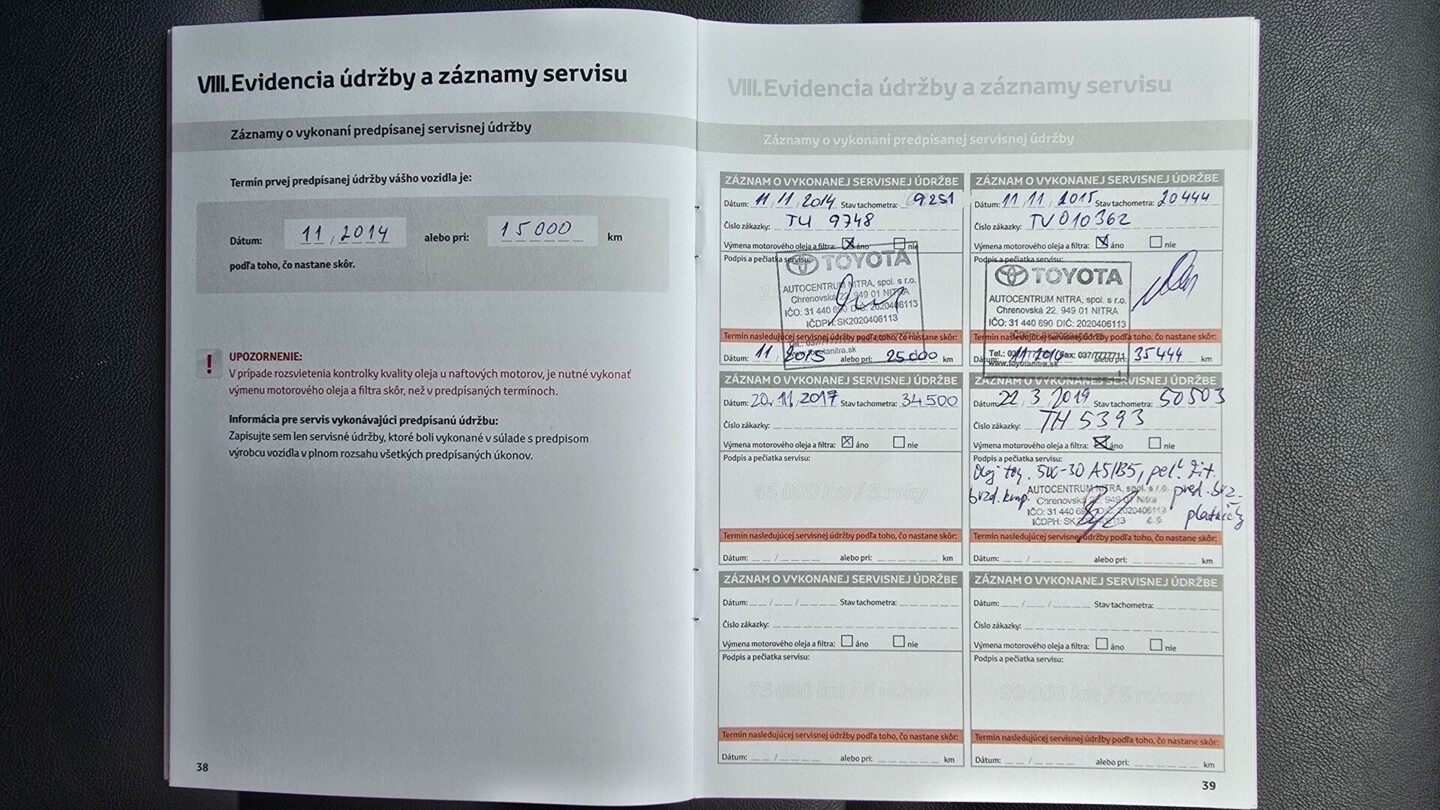 VIII. Evidencia údržby a záznamy servisu
Záznamy o vykonaní predpísanej servisnej údržby
Termín prvej predpísanej údržby vášho vozidla je:
Dátum: 11, 2014 alebo pri: 15000 km
podľa toho, čo nastane skôr.
! UPOZORNENIE:
V prípade rozsvietenia kontrolky kvality oleja u naftových motorov, je nutné vykonať
výmenu motorového oleja a filtra skôr, než v predpísaných termínoch.
Informácia pre servis vykonávajúci predpísanú údržbu:
Zapisujte sem len servisné údržby, ktoré boli vykonané v súlade s predpisom
výrobcu vozidla v plnom rozsahu všetkých predpísaných úkonov.
38
VIII. Evidencia údržby a záznamy servisu
Záznamy o vykonaní predpísanej servisnej údržby
ZÁZNAM O VYKONANEJ SERVISNEJ ÚDRŽBE
Dátum: 11, 11, 2014 Stav tachometra: 9251
Číslo zákazky: TU 9748
Výmena motorového oleja a filtra: áno nie
Podpis a pečiatka servisu:
TOYOTA
AUTOCENTRUM NITRA, spol. s r.o.
Chrenovská 22, 949 01 NITRA
IČO: 31 440 690 DIČ: 2020406113
IČDPH:SK2020406113
Termín nasledujúcej servisnej údržby podľa toho, čo nastane skôr:
Dátum: 11, 2015 alebo pri: 25000 km
ZÁZNAM O VYKONANEJ SERVISNEJ ÚDRŽBE
Dátum: 11, 11, 2015 Stav tachometra: 20444
Číslo zákazky: TV010362
Výmena motorového oleja a filtra: áno nie
Podpis a pečiatka servisu:
TOYOTA
AUTOCENTRUM NITRA, spol. s r.o.
Chrenovská 22, 949 01 NITRA
IČO: 31 440 690 DIČ: 2020406113
Termín nasledujúcej servisnej údržby podľa toho, čo nastane skôr:
Dátum: 11, 2016 alebo pri: 35444 km
www.toyotanitra.sk
ZÁZNAM O VYKONANEJ SERVISNEJ ÚDRŽBE
Dátum: 20. 11, 2017 Stav tachometra: 34500
Číslo zákazky:
Výmena motorového oleja a filtra: áno nie
Podpis a pečiatka servisu:
45 000 km / 3 roky
Termín nasledujúcej servisnej údržby podľa toho, čo nastane skôr:
Dátum: / alebo pri: km
ZÁZNAM O VYKONANEJ SERVISNEJ ÚDRŽBE
Dátum: 22, 3 2019 Stav tachometra: 50503
Číslo zákazky: TH 5393
Výmena motorového oleja a filtra: áno nie
Podpis a pečiatka servisu:
Olej 5W-30 A5/B5,
brzd. kvap. pred. brz.
platničky
AUTOCENTRUM NITRA, spol. s r.o.
Chrenovská 22, 949 01 Nitra
IČO: 31 440 690 DIČ: 2020406113
Termín nasledujúcej servisnej údržby podľa toho, čo nastane skôr:
Dátum: / alebo pri: km
ZÁZNAM O VYKONANEJ SERVISNEJ ÚDRŽBE
Dátum: / / Stav tachometra:
Číslo zákazky:
Výmena motorového oleja a filtra: áno nie
Podpis a pečiatka servisu:
75 000 km / 5 rokov
Termín nasledujúcej servisnej údržby podľa toho, čo nastane skôr:
Dátum: / alebo pri: km
ZÁZNAM O VYKONANEJ SERVISNEJ ÚDRŽBE
Dátum: / / Stav tachometra:
Číslo zákazky:
Výmena motorového oleja a filtra: áno nie
Podpis a pečiatka servisu:
90 000 km / 6 rokov
Termín nasledujúcej servisnej údržby podľa toho, čo nastane skôr:
Dátum: / alebo pri: km
39